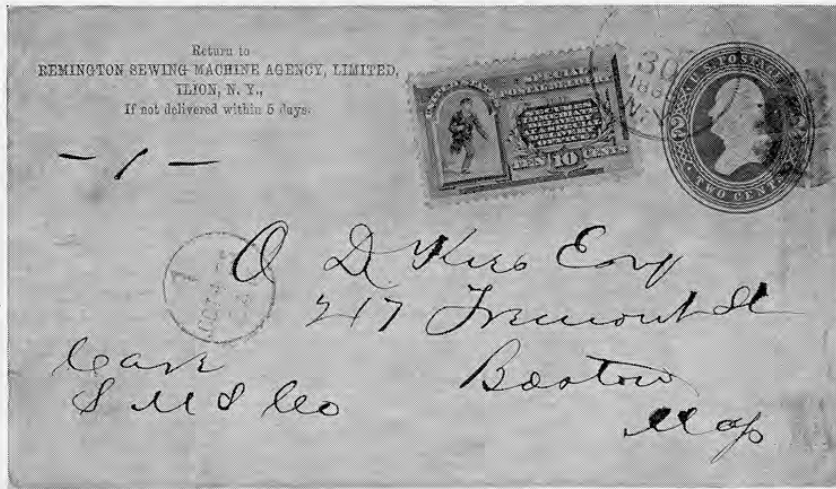 Return to
REMINGTON SEWING MACHINE AGENCY, LIMITED,
ILION, N. Y.,
If not delivered within 5 days.
UNITED STATES
SPECIAL
POSTAL DELIVERY
TEN 10 CENTS
30
188
N.Y.
U.S. POSTAGE
2 2
TWO CENTS
- 1 -
O D
217 Tremont St
Boston
Mass
Care
S M S Co
1
OCT